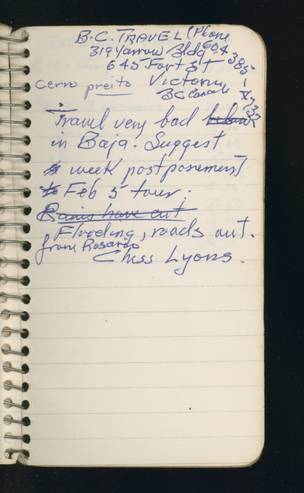 B.C. TRAVEL (Phone
319 Yarrow Bldg 604
645 Fort St 385
Cerro preito Victoria
BC Canada
Travel very bad
in Baja. Suggest
week postponement
Feb 5 tour.
Rains have cut
Flooding, roads out.
from Rosario
Chess Lyons.